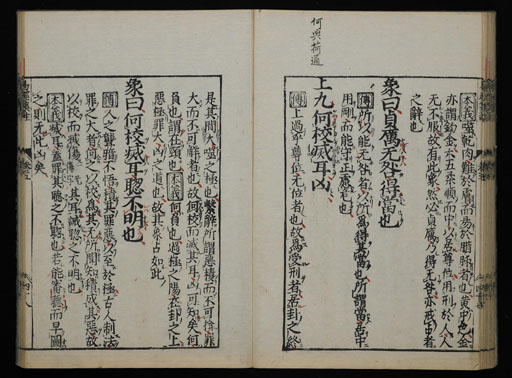 何與荷通
本義噬乾肉難於膚而易於腊胏者也黄中色金
亦謂鈞金六五柔順而中以居尊位用刑於人人
无不服故有此象然必貞厲乃得无咎亦戒占者
之辭也
象曰貞厲无咎得當也
傳所以能无咎者以所爲得其當也所謂當居中
用剛而能守正慮危也
上九何校滅耳凶
傳上過乎尊位无位者也故爲受刑者居卦之終
是其間大噬之極也繫辭所謂惡積而不可揜罪
大而不可解者也故何校而滅其耳凶可知矣何
負也謂在頸也本義何負也過極之陽在卦之上
惡極罪大凶之道也故其象占如此
象曰何校滅耳聰不明也
傳人之聾暗不悟積其罪惡以至於極古人制法
罪之大者何之以校爲其无所聞知積成其惡故
以校而滅傷其耳誡聰之不明也
本義滅耳蓋罪其聽之不聰也若能審聽而早圖
之則无此凶矣